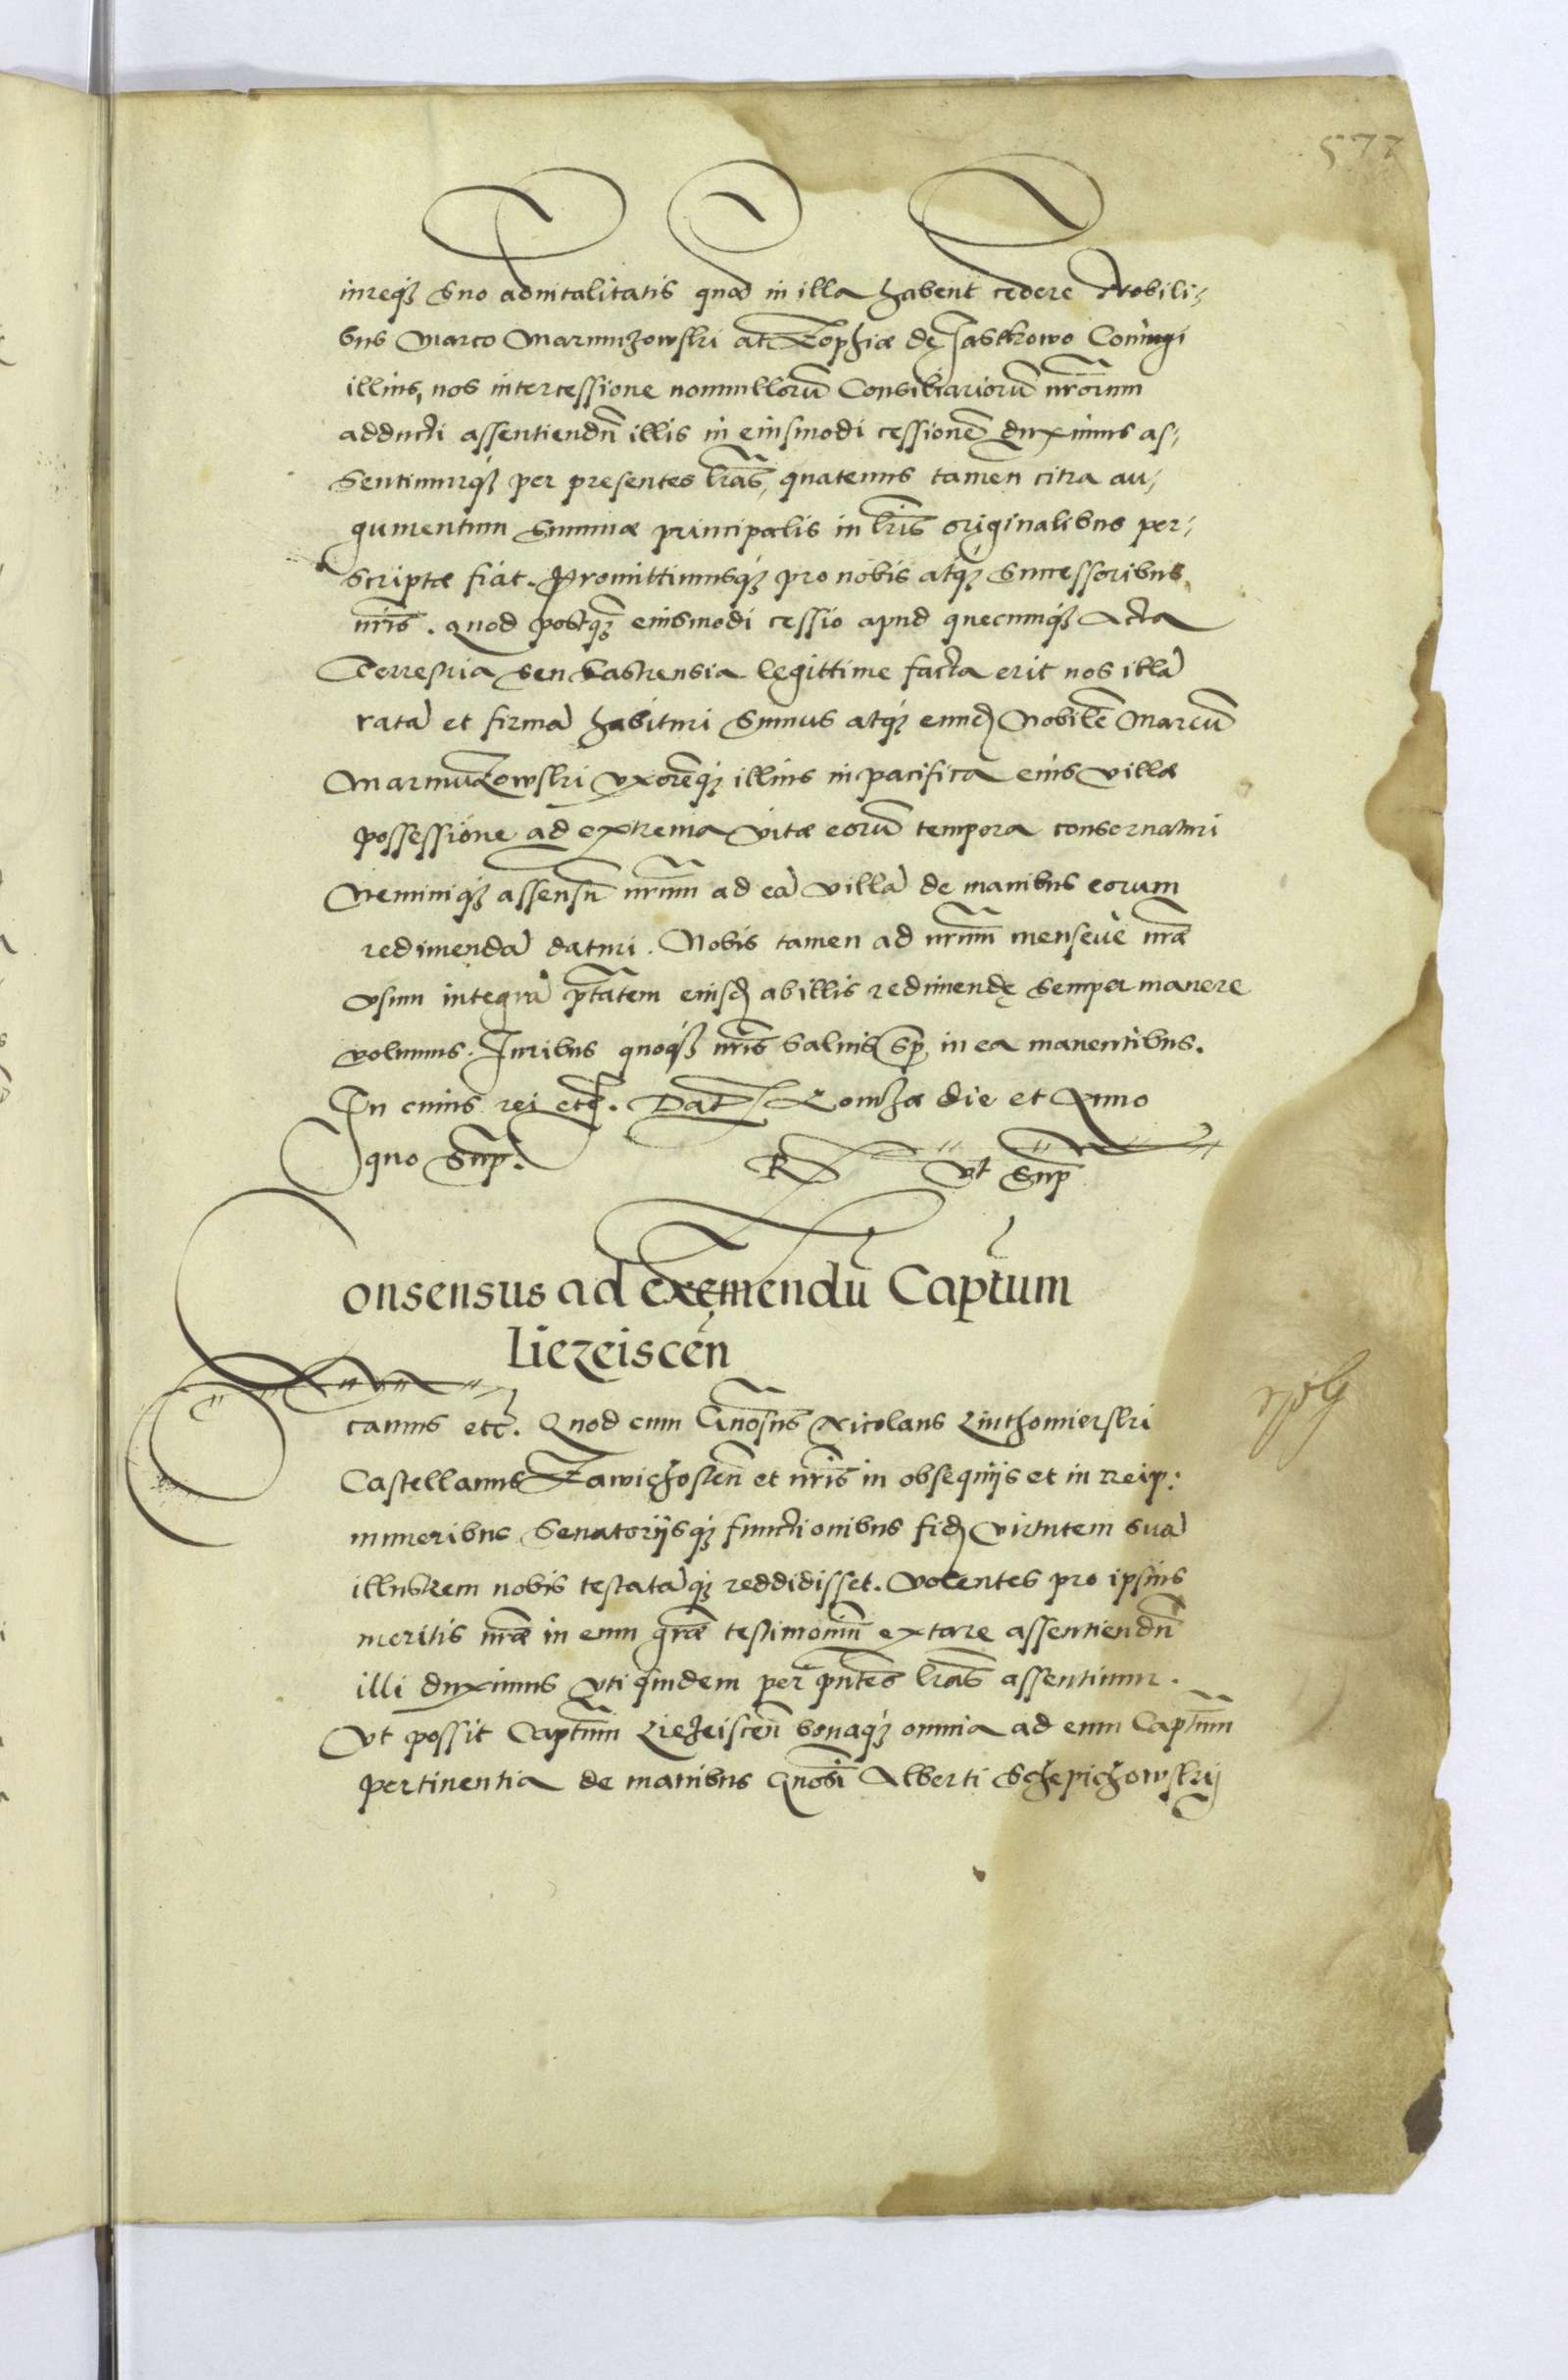 577
iureq3 suo aduitalitatis quod in illa habent cedere Nobili-
bus Marco Marunzowski at Zophiæ de Jastkowo Coniugi
illius, nos intercessione nonnullorū Consiliariorū nr̄orum
adducti assentiendū illis in eiusmodi cessionē duximus as-
sentimurq3 per presentes lr̄as, quatenus tamen citra au-
gumentum summæ principalis in lr̄is originalibus per-
scriptæ fiat. Promittimusq3 pro nobis atq3 successoribus
nr̄is. Quod postq3 eiusmodi cessio apud quecunq3 Acta
Terrestria seu Castrensia legittime facta erit nos illā
ratā et firmā habituri sumus atq3 eund Nobilē Marcū
Marunzowski vxorēq3 illius in pacifica eius villæ
possessione ad extrema vitæ eorū tempora conseruaturi
Neminiq3 assensū nr̄um ad eā villā de manibus eorum
redimendā daturi. Nobis tamen ad nr̄um mensevè nr̄æ
vsum integrā ptātem eiusd ab illis redimendę semper manere
volumus. Iuribus quoq3 nr̄is saluis sp̄ in ea manentibus.
In cuius rei etc. Dat Lomzæ die et Anno
quo sup̄. R vt sup̄
Consensus ad exemendū Cap̄tum
Liezeiscēn
tamus etc. Quod cum Gn̄osus Nicolaus Liuthomierski
Castellanus Zawichostēn et nr̄is in obsequijs et in Reip:
muneribus Senatorijsq3 functionibus fid virtutem suā
illustrem nobis testatāq3 reddidisset. Volentes pro ipsius
meritis nr̄æ in eum gr̄æ testimoniū extare assentiendū
illi duximus vti quidem per pn̄tes lr̄as assentimur.
Vt possit Captūm Liezeiscēn bonaq3 omnia ad eum Captūm
pertinentia de manibus Gn̄osi Alberti Schepichowskij